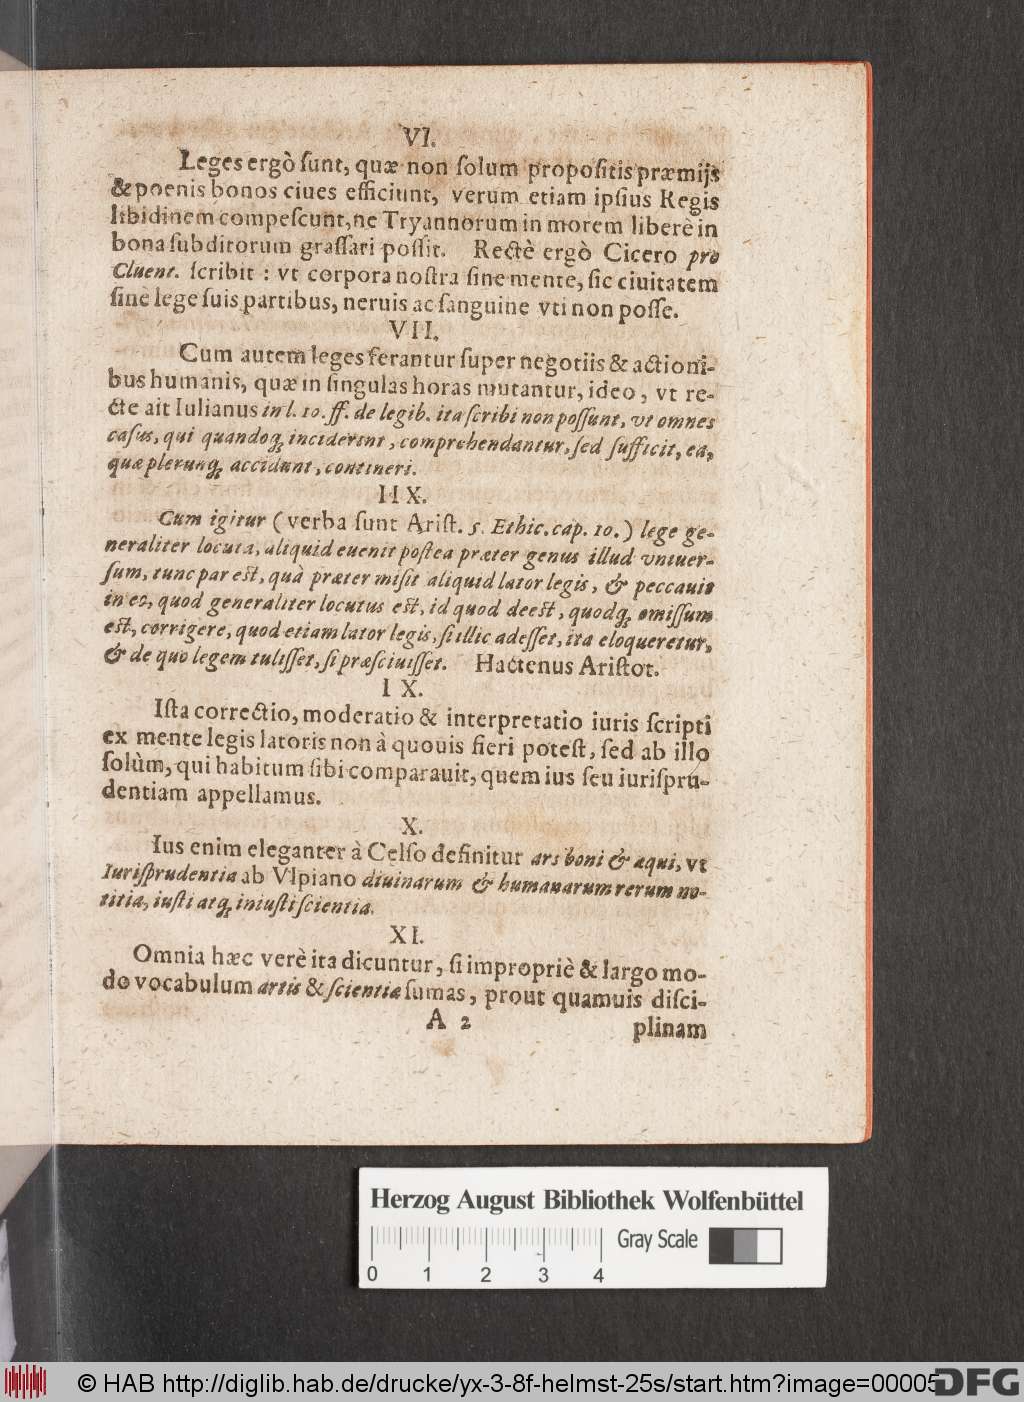 VI.
Leges ergò ſunt, quæ non ſolum propoſitis præmijs
& poenis bonos ciues efficiunt, verum etiam ipſius Regis
libidinem compeſcunt, ne Tryannorum in morem liberè in
bona ſubditorum graſſari poſſit. Rectè ergò Cicero pro
Cluent. ſcribit : vt corpora noſtra ſine mente, ſic ciuitatem
ſinè lege ſuis partibus, neruis ac ſanguine vti non poſſe.
VII.
Cum autem leges ferantur ſuper negotiis & actioni-
bus humanis, quæ in ſingulas horas mutantur, ideo, vt re-
cte ait Iulianus in l. 10. ff. de legib. ita ſcribi non poſſunt, vt omnes
caſus, qui quandoq; inciderint, comprehendantur, ſed ſufficit, ea,
quæ plerunq; accidunt, contineri.
IIX.
Cum igitur (verba ſunt Ariſt. 5. Ethic. cap. 10.) lege ge-
neraliter locuta, aliquid euenit poſtea præter genus illud vniuer-
ſum, tunc par eſt, quà præter miſit aliquid lator legis, & peccauit
in eo, quod generaliter locutus eſt, id quod deeſt, quodq; omiſſum
eſt, corrigere, quod etiam lator legis, ſi illic adeſſet, ita eloqueretur,
& de quo legem tuliſſet, ſi præſciuiſſet. Hactenus Ariſtot.
IX.
Iſta correctio, moderatio & interpretatio iuris ſcripti
ex mente legis latoris non à quouis fieri poteſt, ſed ab illo
ſolùm, qui habitum ſibi comparauit, quem ius ſeu iuriſpru-
dentiam appellamus.
X.
Ius enim eleganter à Celſo definitur ars boni & æqui, vt
Iuriſprudentia ab Vlpiano diuinarum & humanarum rerum no-
titia, iuſti atq; iniuſti ſcientia.
XI.
Omnia hæc verè ita dicuntur, ſi impropriè & largo mo-
do vocabulum artis & ſcientiæ ſumas, prout quamuis diſci-
A 2 plinam
Herzog August Bibliothek Wolfenbüttel
Gray Scale
0 1 2 3 4
© HAB http://diglib.hab.de/drucke/yx-3-8f-helmst-25s/start.htm?image=00005
DFG